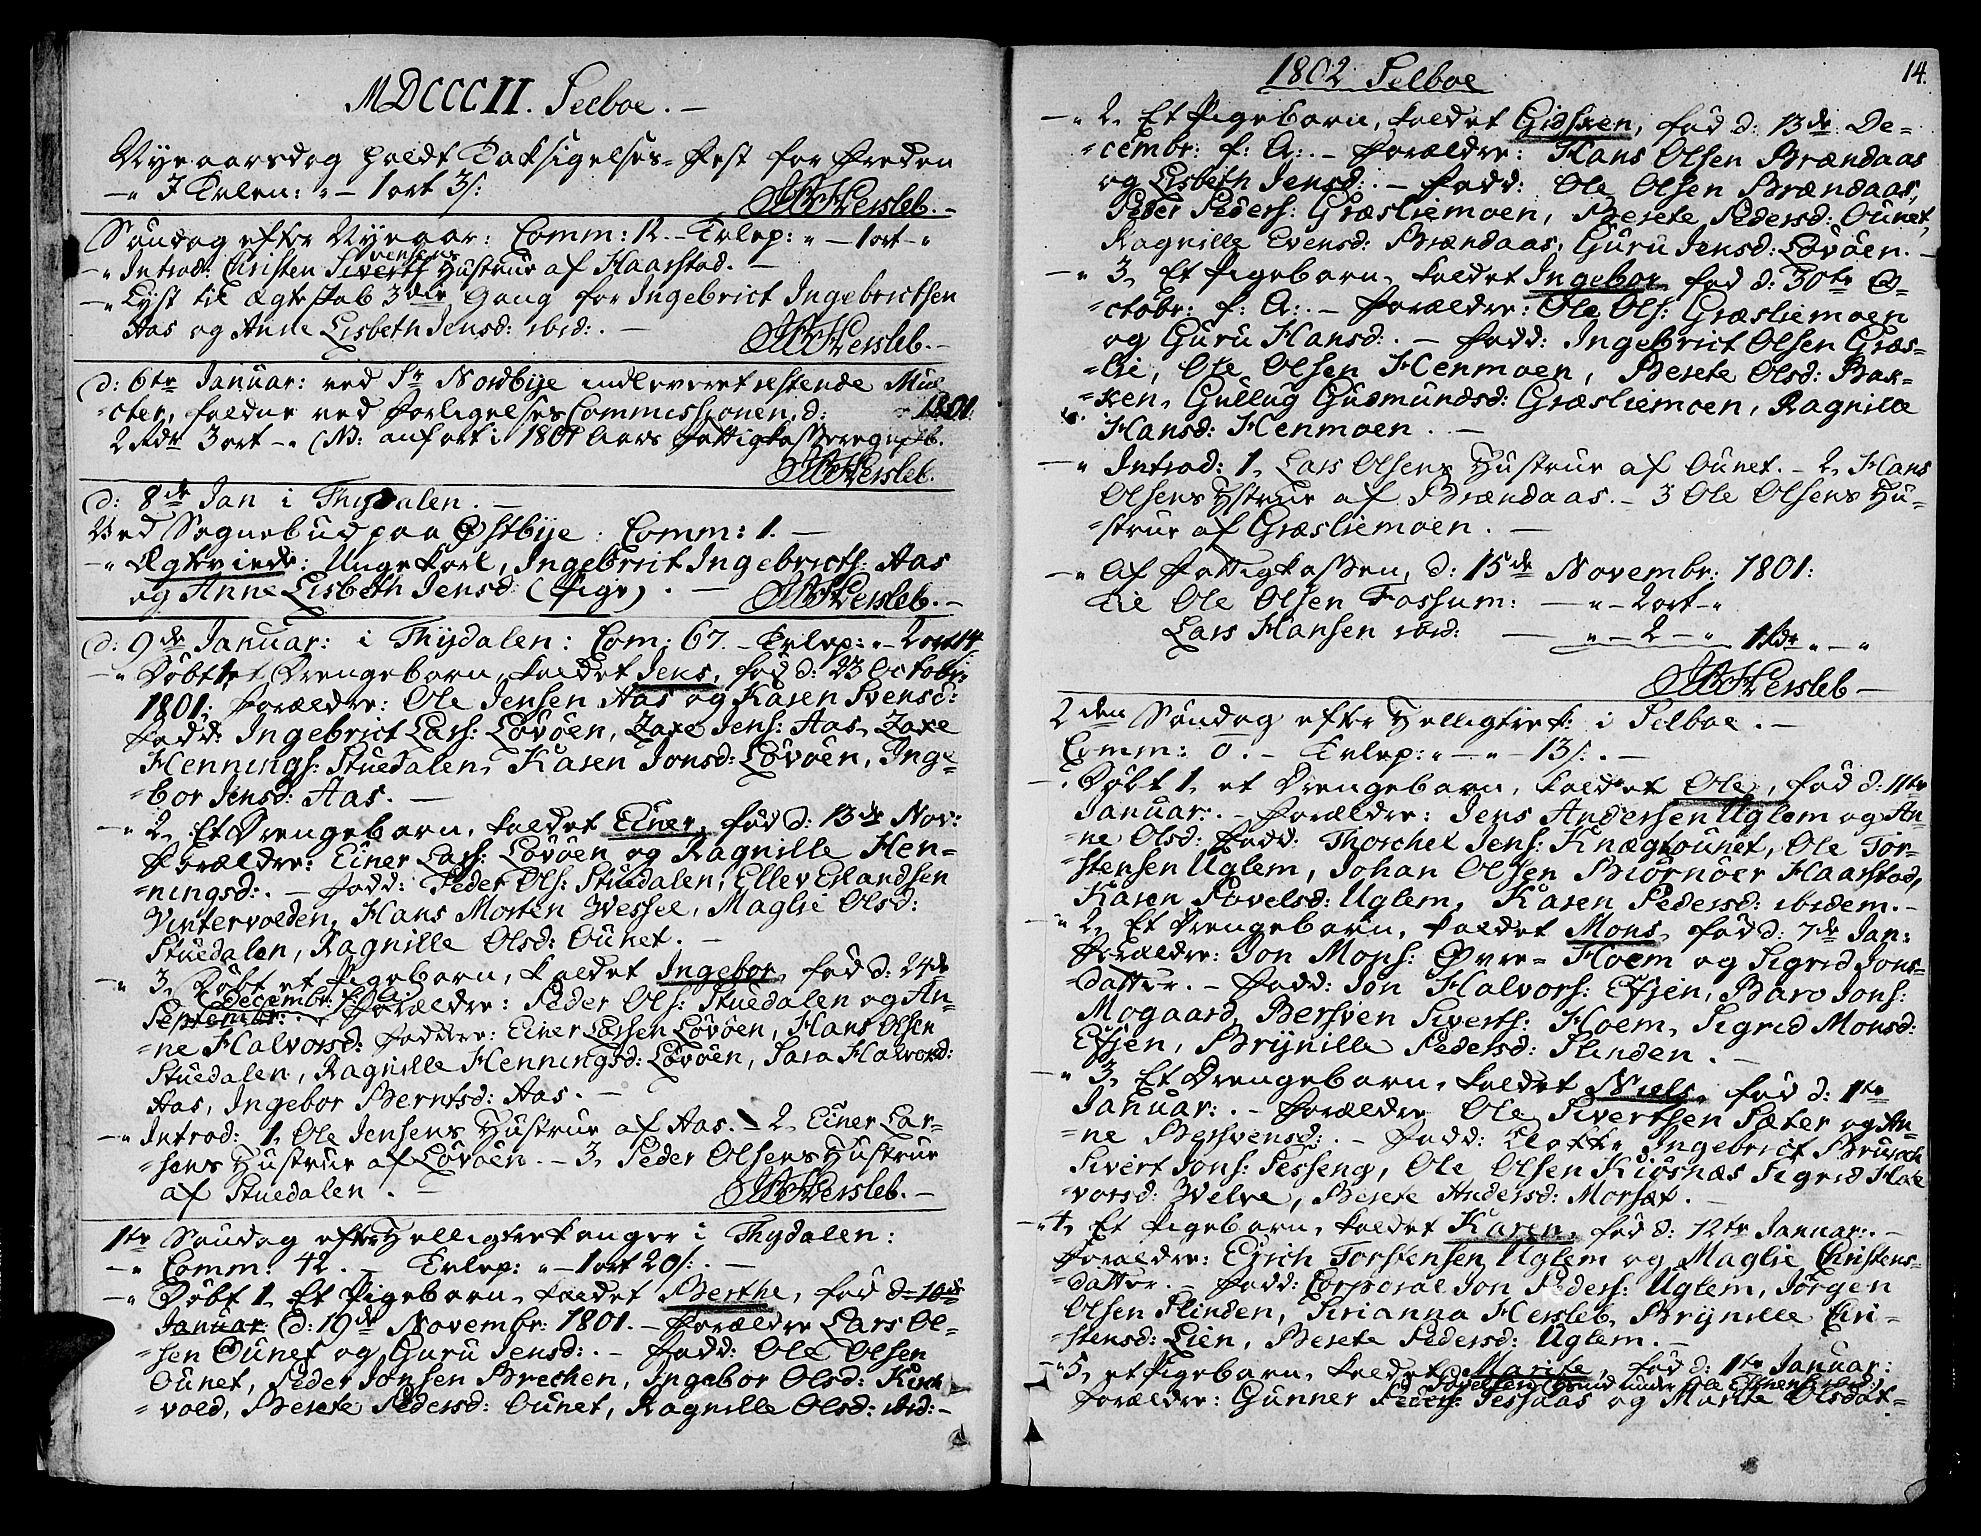 MDCCCII. Selboe. —
Nyeaarsdag holdt Taksigelses-Fest for Freden
—" I Tvlen: " — 1 ort 3/:
HHersleb. —
Søndag efter Nyeaar: Comm: 12. — Tvlep: " — 1 ort — "
—" Introd: Christen Sivertsens Hustrue af Haarstad. —
—" Lyst til Ægteskab 3die Gang for Ingebrict Ingebrictsen
Aas og Anne Lisbeth Jensd: ibid: . —
HHersleb. —
d: 6te Januar: ved Sr Nordbye indleveret restende Mul-
-cter, faldne ved Forligelses Commissionen, d: 1801.
2 Rdr 3 ort — " NB: anført i 1801 Aars Fattigkasseregnsk.
HHersleb.
d: 8de Jan i Thydalen. —
Ved Sognebud paa Østbye: Comm: 1. —
—" Ægteviede: Ungekarl, Ingebrict Ingebricts: Aas
og Anne Lisbeth Jensd: (Pige). —
HHersleb. —
d: 9de Januar: i Thydalen: Com: 67. — Tvlep: " — 2 ort 14
—" Døbt 1, et Drengebarn, kaldet Jens, fød d: 23 Octobr:
1801; Forældre: Ole Jensen Aas og Karen Svensd:
Fadd: Ingebrict Lars: Løvøen, Zaxe Jens: Aas, Zaxe
Hennings: Stuedalen, Karen Jonsd: Løvøen, Inge-
-bor Jensd: Aas. —
—" 2, Et Drengebarn, kaldet Einer, fød d: 13de Nov:
Forældre: Einer Lars: Løvøen og Ragnille Hen-
-ningsd: . — Fadd: Peder Ols: Stuedalen, Ellev Erlandsen
Vintervolden, Hans Morten Wessel, Maglie Olsd:
Stuedalen, Ragnille Olsd: Ounet. —
—" 3, Døbt et Pigebarn, kaldet Ingebor, fød d: 24de
Septembr: Decembr: f: A: Forældre: Peder Ols: Stuedalen og An-
-ne Halvorsd: Faddere: Einer Larsen Løvøen, Hans Olsen
Stuedalen, Ragnille Henningsd: Løvøen, Sara Halvorsd:
Aas, Ingebor Berntsd: Aas. —
—" Introd: 1, Ole Jensens Hustrue af Aas. — 2, Einer Lar-
-sens Hustrue af Løvøen. — 3, Peder Olsens Hustrue
af Stuedalen. —
HHersleb. —
1te Søndag efter Helligtrekonger i Thydalen:
—" Comm: 42. — Tvlep: " — 1 ort 20/: . —
—" Døbt 1, Et Pigebarn, kaldet Berthe, fød d: 10de
Januar d: 19de Novembr: 1801. — Forældre Lars Ol-
-sen Ounet og Guru Jensd: . — Fadd: Ole Olsen
Ounet, Peder Jonsen Brechen, Ingebor Olsd: Kirk-
-vold, Berete Pedersd: Ounet, Ragnille Olsd: ibid: —
1802 Selboe
14.
—" 2, Et Pigebarn, kaldet Gidsken, fød d: 13de De-
-cembr: f: A: . — Forældre: Hans Olsen Brændaas
og Lisbeth Jensd: . — Fadd: Ole Olsen Brændaas,
Peder Peders: Græsliemoen, Berete Pedersd: Ounet,
Ragnille Evensd: Brændaas, Guru Jensd: Løvøen. —
—" 3, Et Pigebarn, kaldet Ingebor, fød d: 30te O-
-ctobr: f: A: . — Forældre: Ole Ols: Græsliemoen
og Guru Hansd: . — Fadd: Ingebrict Olsen Græs-
-lie, Ole Olsen Henmoen, Berete Olsd: Bak-
-ken, Gullug Gudmundsd: Græsliemoen, Ragnille
Hansd: Henmoen. —
—" Introd: 1, Lars Olsens Hustrue af Ounet. — 2, Hans
Olsens Hstrue af Brændaas. — 3 Ole Olsens Hu-
-strue af Græsliemoen. —
—" Af Fattigkassen, d: 15de Novembr: 1801:
til Ole Olsen Fossum: — " — 2 ort — "
Lars Hansen ibid: — " — 2 — " 1 Rdr " — "
HHersleb —
2den Søndag efter Helligtrek: i Selboe. —
Comm: 0. — Tvlep: " — " — 13/: . —
—" Døbt 1, et Drengebarn, kaldet Ole, fød d: 11te
Januar: . — Forældre: Jens Andersen Uglem og An-
-ne Olsd: Fadd: Thorchel Jens: Knægtounet, Ole Tor-
-stensen Uglem, Johan Olsen Biørnøer Haarstad,
Karen Povelsd: Uglem, Karen Pedersd: ibidem. —
—" 2, Et Drengebarn, kaldet Mons, fød d: 7de Jan:
Forældre: Jon Mons: Øvre-Hoem og Sigrid Jons-
-datter. — Fadd: Jon Halvors: Evjen, Baro Jons:
Mogaard, Bersven Siverts: Hoem, Sigrid Monsd:
Evjen, Brynille Pedersd: Slinden. —
—" 3, Et Drengebarn, kaldet Niels, fød d: 1te
Januar: . — Forældre Ole Sivertsen Sæter og An-
-ne Bersvensd: . — Fadd: Klokker Ingebrict Brurok
Sivert Jons: Sesseng, Ole Olsen Kiøsnæs Sigrid Hal-
vorsd: Welve, Berete Andersd: Morset. —
—" 4, Et Pigebarn, kaldet Karen, fød d: 12te Januar: . —
Forældre: Erich Torstensen Uglem og Maglie Christens-
-datter. — Fadd: Corporal Jon Peders: Uglem, Jørgen
Olsen Slinden, Sirianna Hersleb, Brynille Chri-
-stensd: Lien, Berete Pedersd: Uglem. —
—" 5, et Pigebarn, kaldet Marite, fød d: 1te Januar:
Forældre: Gunner Peders: Sessaas og Marite Olsdat-